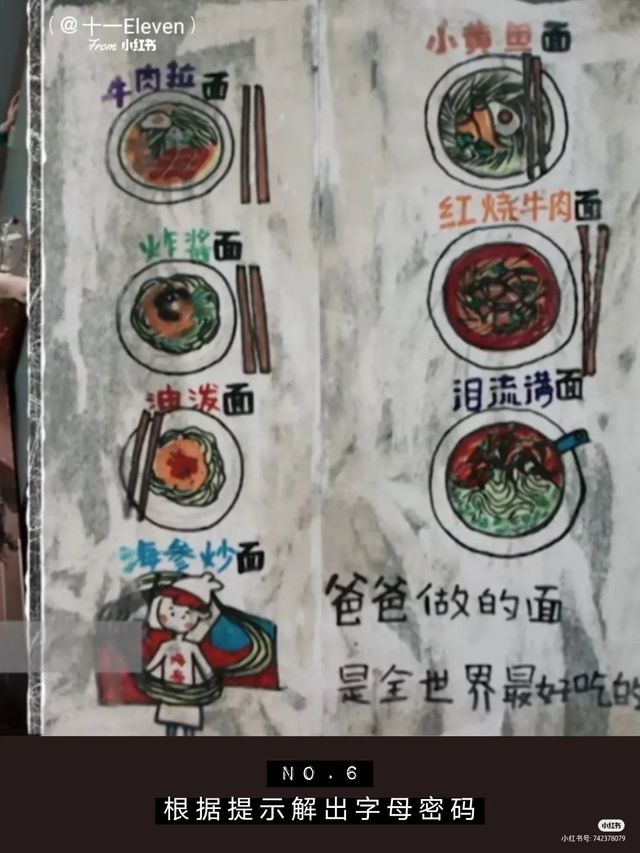 (@十一Eleven)
From 小红书
牛肉拉面
小黄鱼面
炸酱面
红烧牛肉面
油泼面
泪流满面
海参炒面
爸爸做的面
是全世界最好吃的
NO.6
根据提示解出字母密码
小红书
小红书号: 742378079